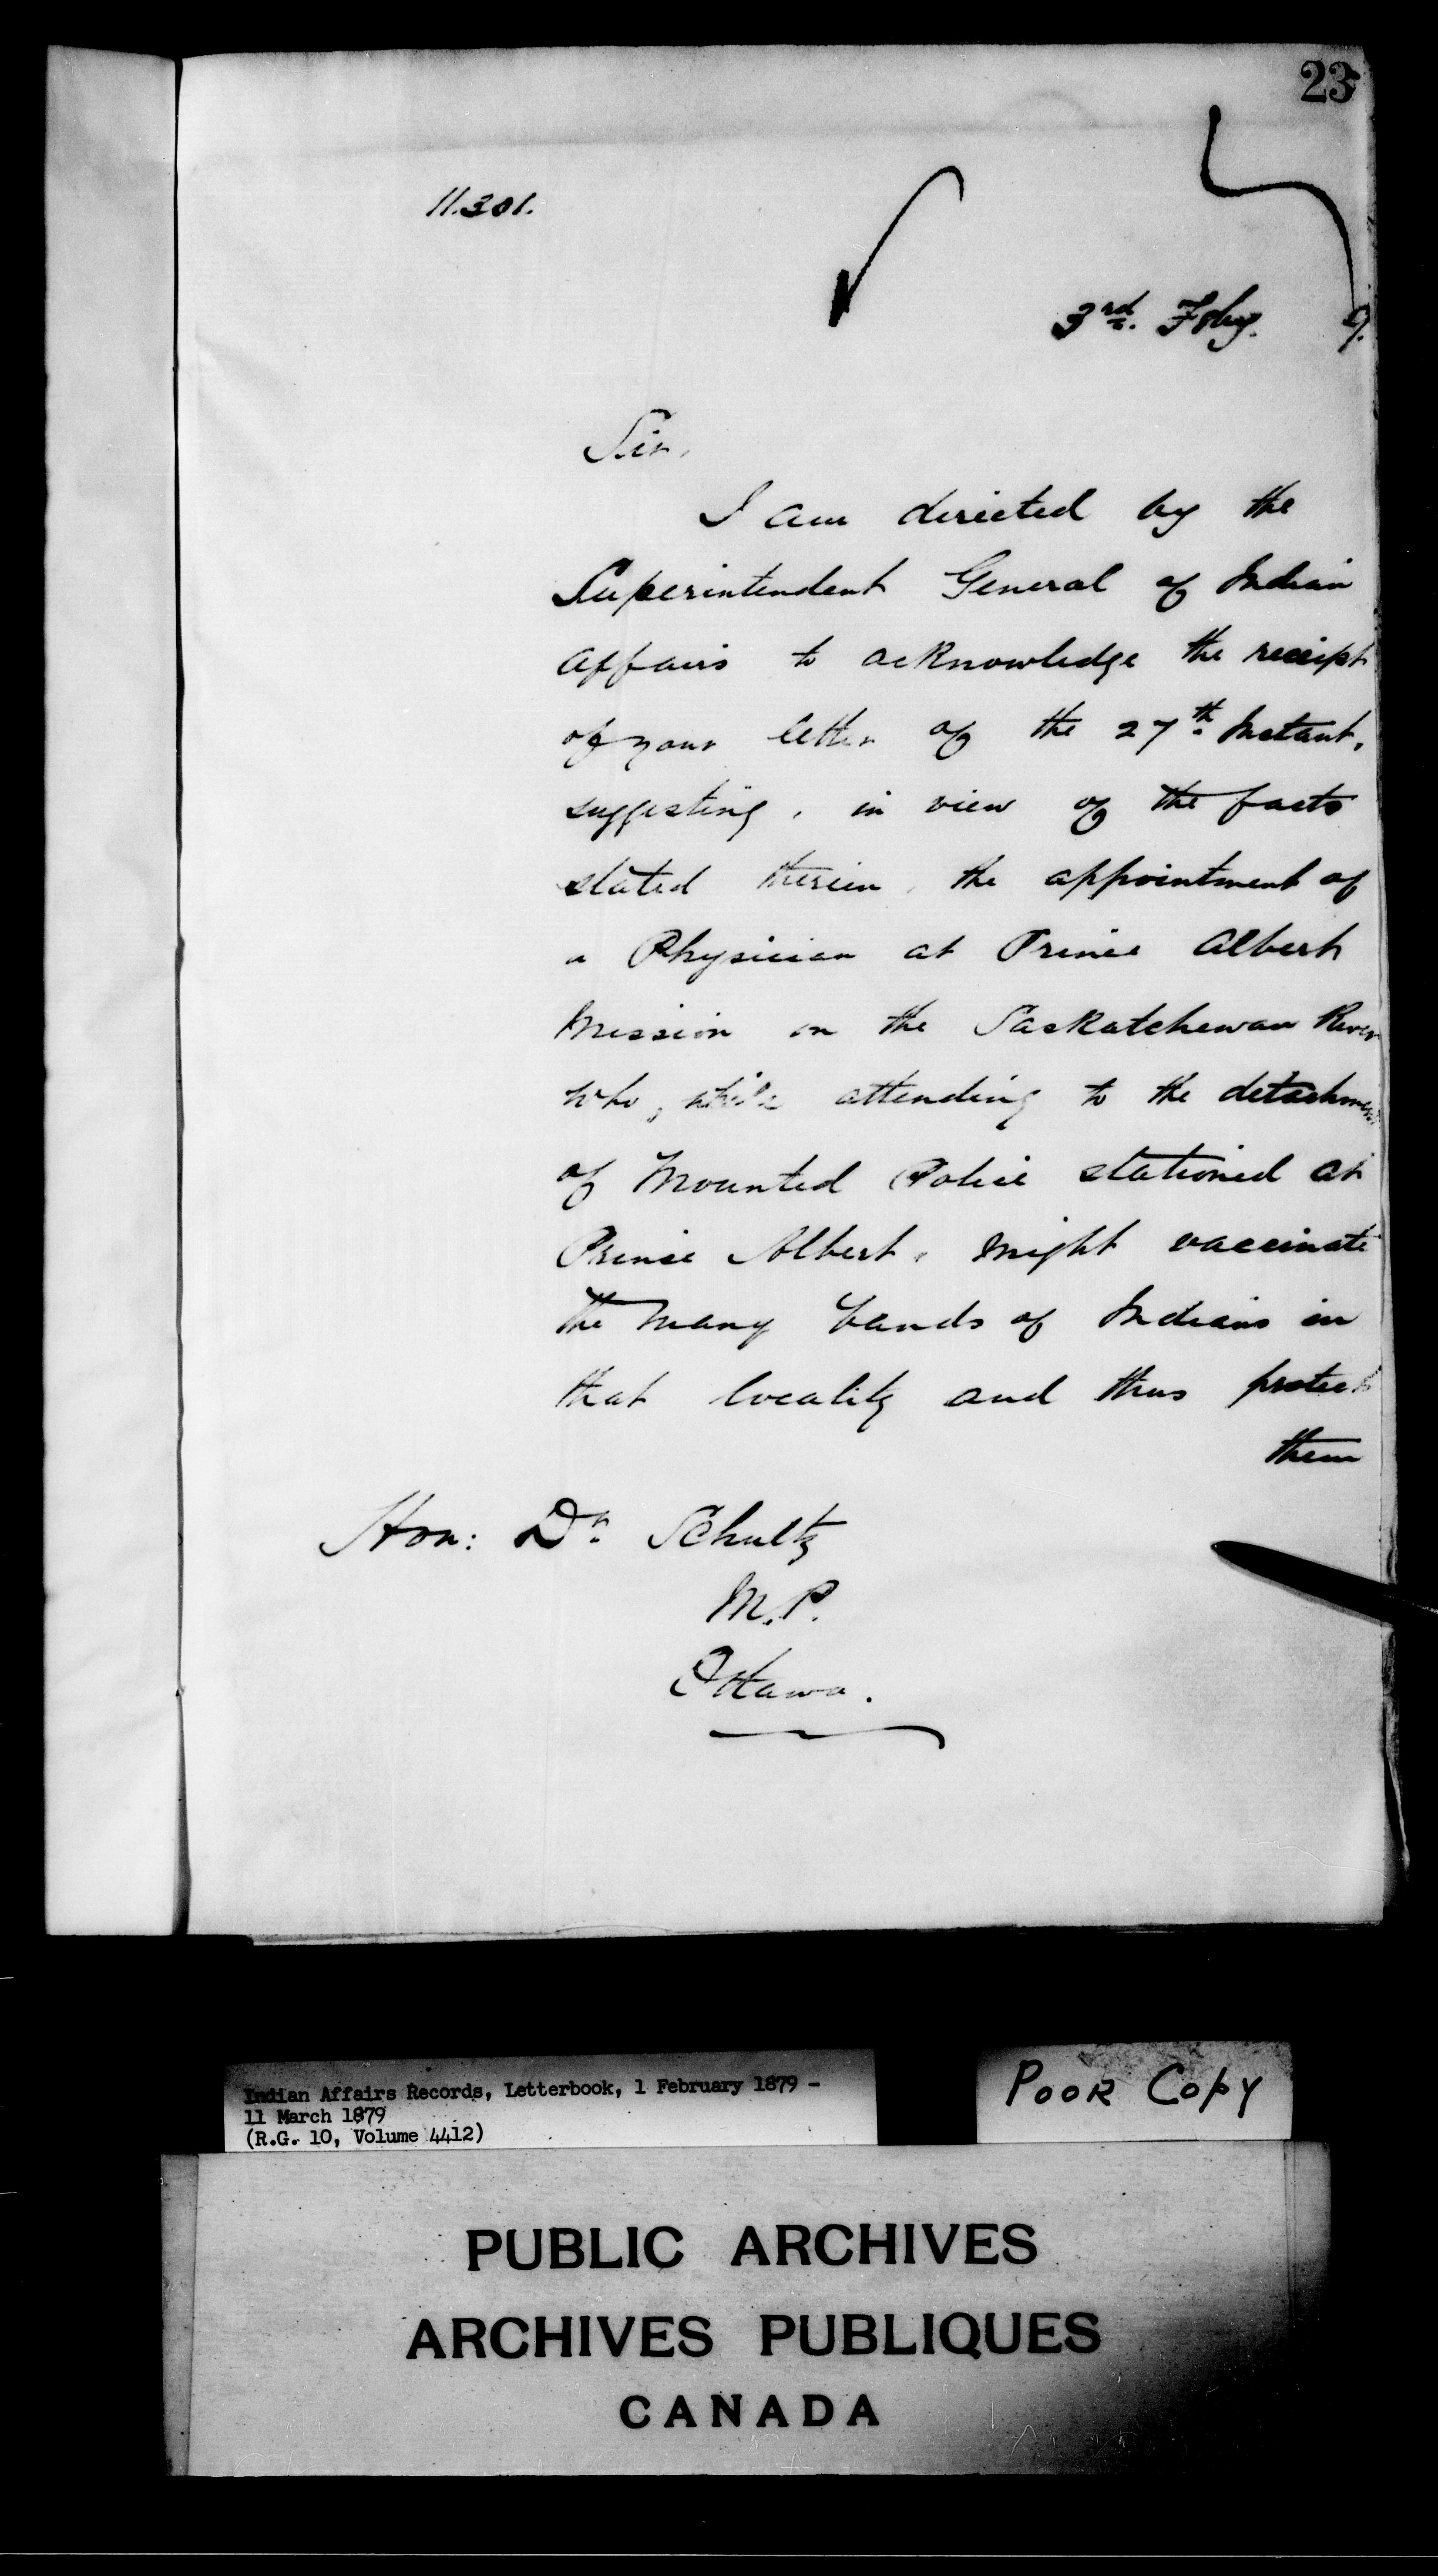 23
11.301.
3rd. Feby. 9.
Sir,
I am directed by the
Superintendent General of Indian
Affairs to acknowledge the receipt
of your letter of the 27th. Instant,
suggesting, in view of the facts
stated therein, the appointment of
a Physician at Prince Albert
Mission on the Saskatchewan River
who, while attending to the detachment
of Mounted Police stationed at
Prince Albert, might vaccinate
the many bands of Indians in
that locality and thus protect
them
Hon: Dr. Schultz
M.P.
Ottawa.
Indian Affairs Records, Letterbook, 1 February 1879 -
11 March 1879
(R.G. 10, Volume 4412)
POOR COPY
PUBLIC ARCHIVES
ARCHIVES PUBLIQUES
CANADA